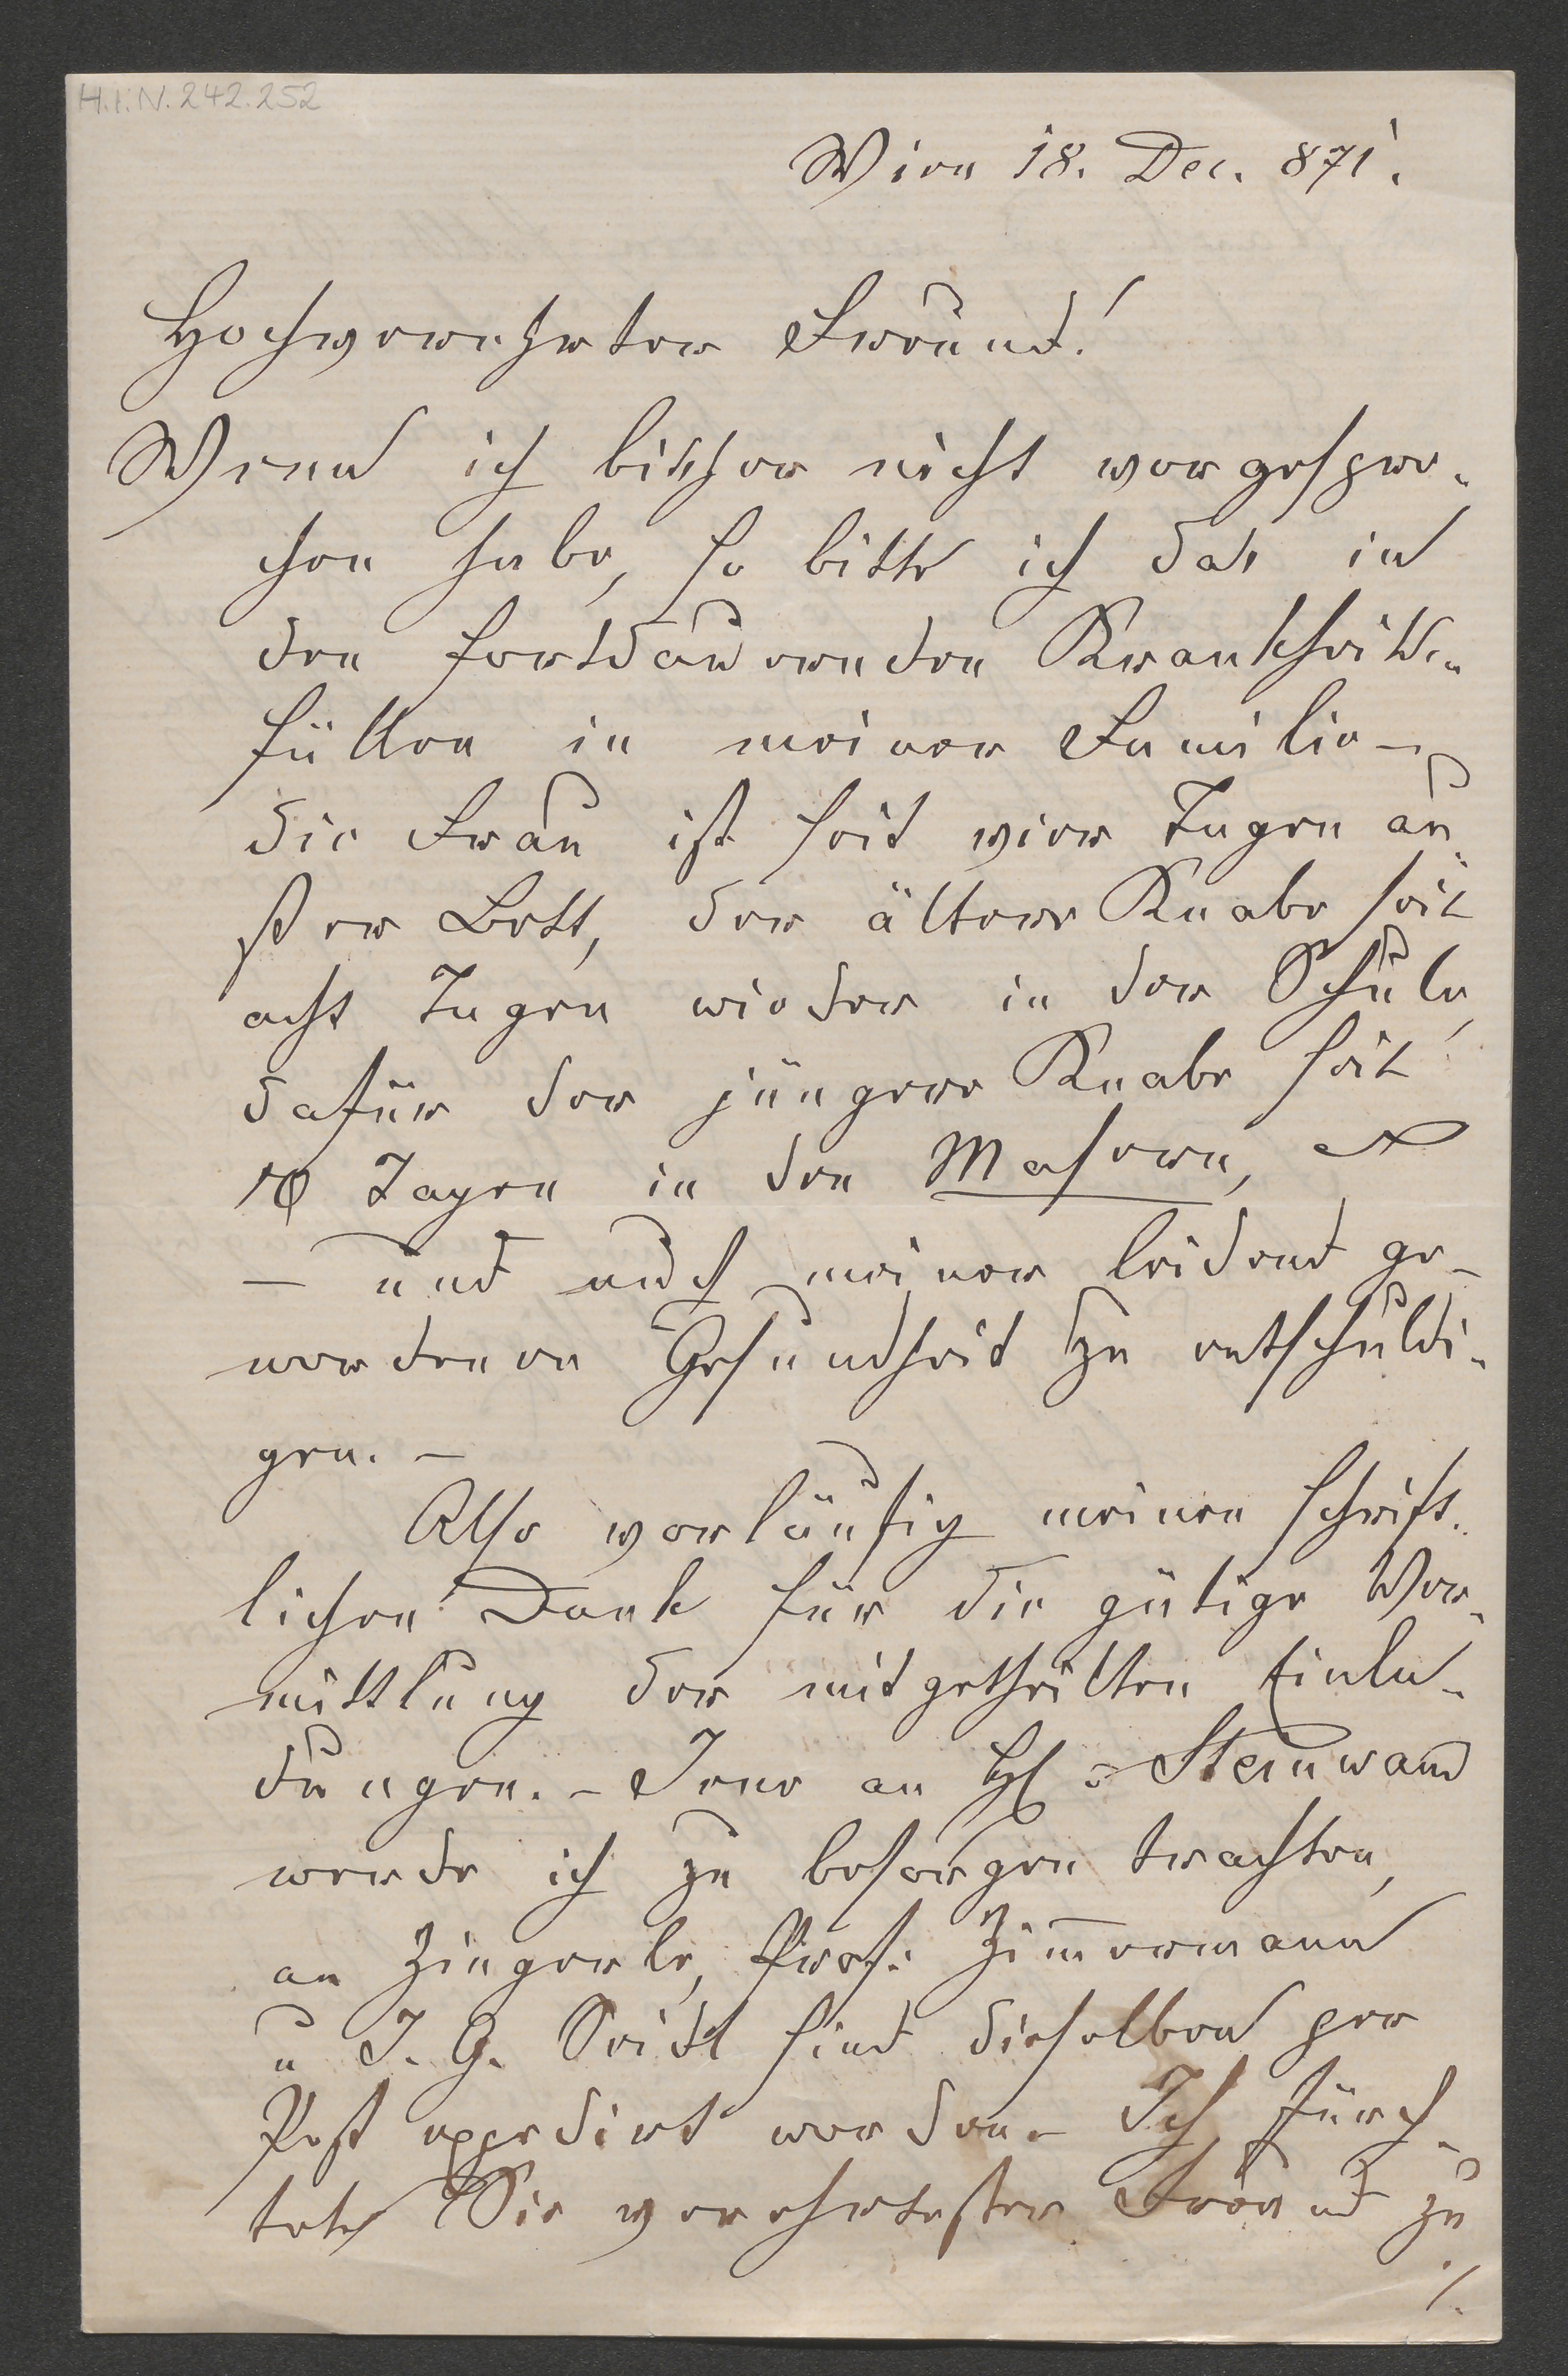 H.I.N. 242.252
Wien 18. Dec. 871.
Hochverehrter Freund!
Wenn ich bisher nicht vorgespro-
chen habe, so bitte ich das in
den fortdauernden Krankheits-
fällen in meiner Familie –
die Frau ist seit vier Tagen au-
ßer Bett, der ältere Knabe seit
acht Tagen wieder in der Schule,
dafür der jüngere Knabe seit
10 Tagen in den Masern,
– und auch meiner leidend ge-
wordenen Gesundheit zu entschuldi-
gen. –
Also vorläufig meinen schrift-
lichen Dank für die gütige Ver-
mittlung der mitgetheilten Einla-
dungen. – Jene an H v Steinwand
werde ich zu besorgen trachten,
an Zingerle, Prof. Zim̄ermann
u J. G. Seidl sind dieselben per
Post expedirt worden. – Ich fürch-
tete Sie verehrtester Freund zu
./.